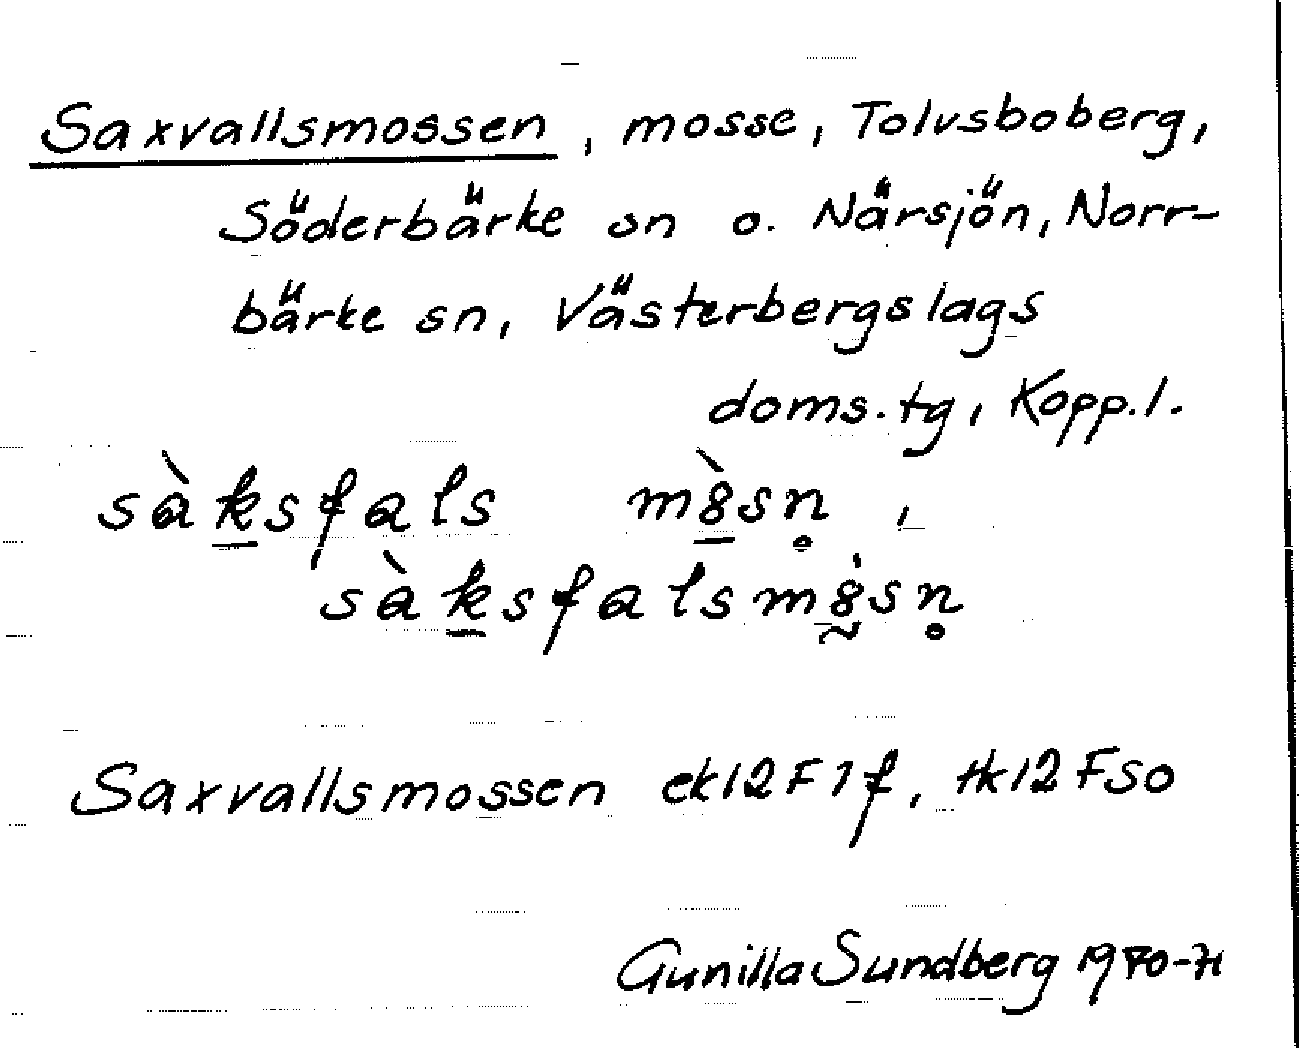 Saxvallsmossen, mosse, Tolvsboberg,
Söderbärke sn o. Närsjön, Norr-
bärke sn, Västerbergslags
doms.tg, Kopp.l.
sàksfals mòsn̥,
sàksfalsmȯsn̥
Saxvallsmossen ek12F7f, tk12FSO
Gunilla Sundberg 1970-71